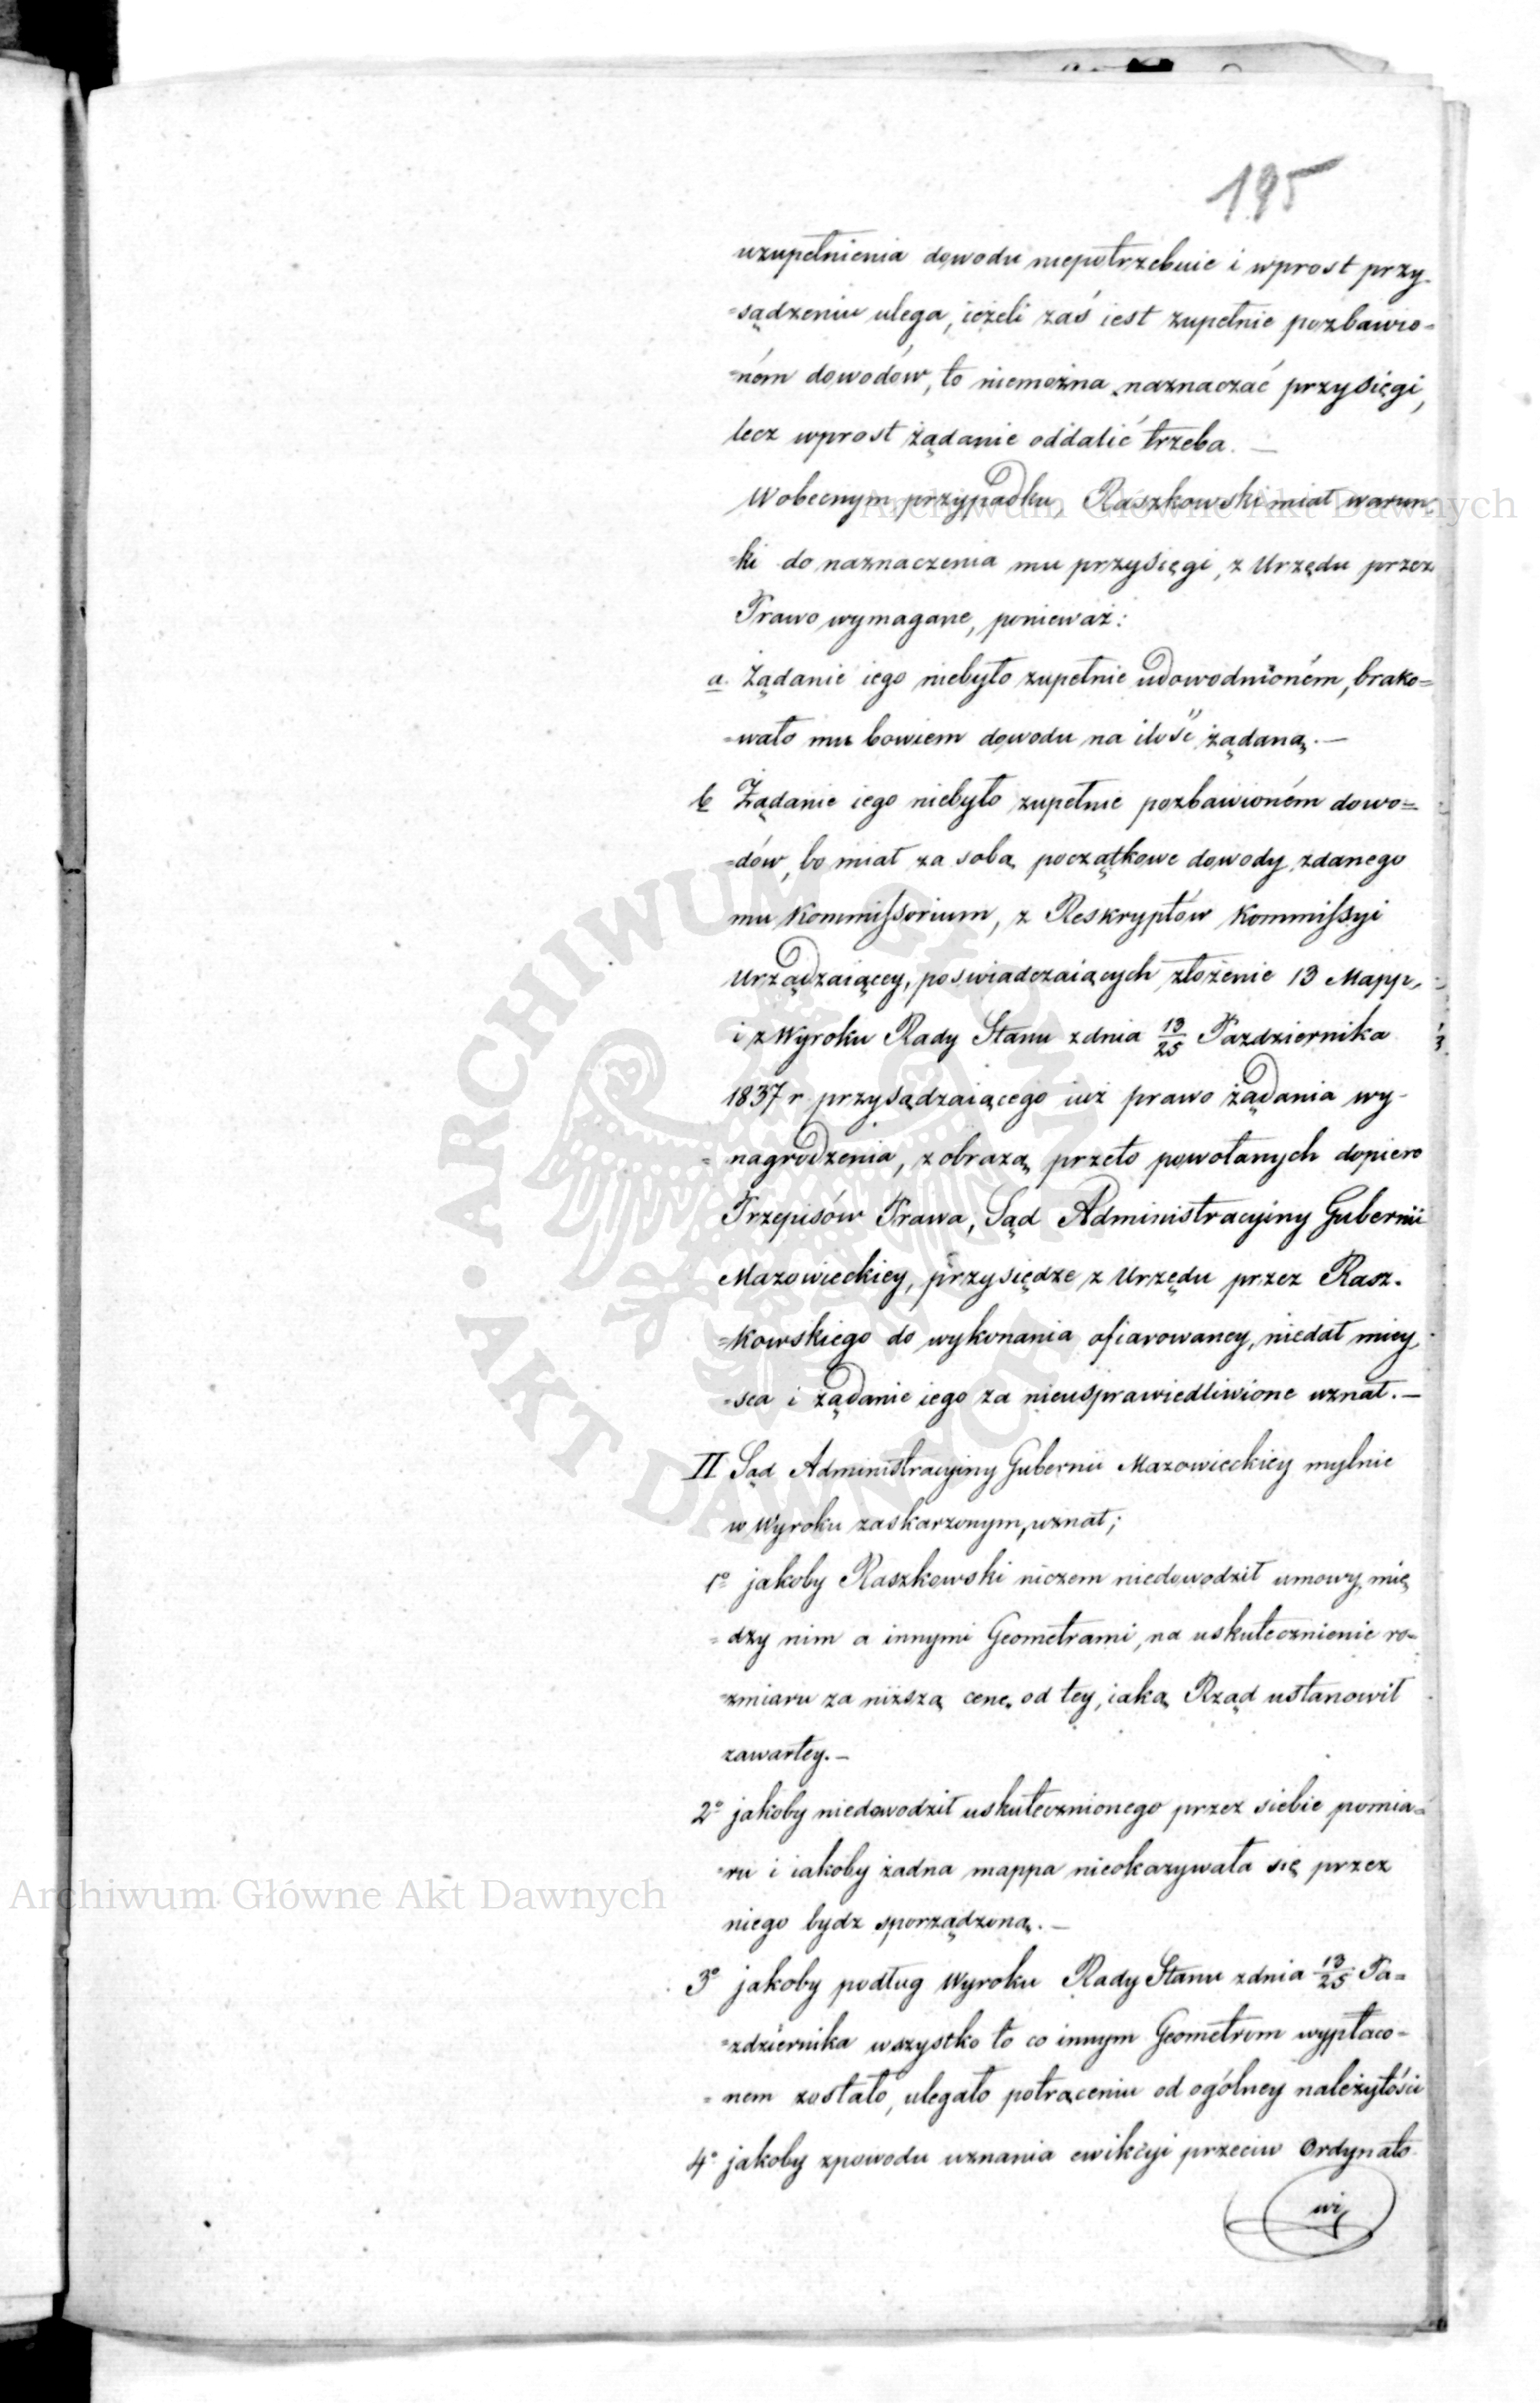 195
uzupełnienia dowodu niepotrzebuie i wprost przy-
=sądzeniu ulega, ieżeli zaś iest zupełnie pozbawio=
=ném dowodów, to niemożna naznaczać przysięgi,
lecz wprost żądanie oddalić trzeba. —
Wobecnym przypadku, Raszkowski miał warun-
ki do naznaczenia mu przysięgi, z Urzędu przez
Prawo wymagane, ponieważ:
a. Żądanie iego niebyło zupełnie udowodnioném, brako=
=wało mu bowiem dowodu na ilość żądaną. —
b Żądanie iego niebyło zupełnie pozbawioném dowo=
=dów, bo miał za sobą początkowe dowody, zdanego
mu Kommissorium, z Reskryptów Kommissyi
Urządzaiącey, poswiadczaiących złożenie 13 Mapp,
i z Wyroku Rady Stanu zdnia 13/25 Pazdziernika
1837 r. przysądzaiącego iuż prawo żądania wy-
=nagrodzenia, z obrazą przeto powołanych dopiero
Przepisów Prawa, Sąd Administracyiny Gubernii
Mazowieckiey, przysiędze z Urzędu przez Rasz-
=kowskiego do wykonania ofiarowaney, niedał miey-
=sca i żądanie iego za nieusprawiedliwione uznał. —
II Sąd Administracyiny Gubernii Mazowieckiey mylnie
w Wyroku zaskarzonym, uznał;
1° jakoby Raszkowski niczem niedowodził umowy, mię
=dzy nim a innymi Geometrami, na uskutecznienie ro=
=zmiaru za niższą cenę od tey, iaką Rząd ustanowił
zawartey. —
2° jakoby niedowodził uskutecznionego przez siebie pomia=
=ru i iakoby żadna mappa nieokazywała się przez
niego bydz sporządzoną. —
3° jakoby podług Wyroku Rady Stanu zdnia 13/25 Pa=
=zdziernika wszystko to co innym Geometrom wypłaco=
=nem zostało, ulegało potrąceniu od ogólney należytości
4° jakoby zpowodu uznania ewikcyi przeciw Ordynato
wi,
Archiwum Główne Akt Dawnych
Archiwum Główne Akt Dawnych
ARCHIWUM GŁÓWNE • AKT DAWNYCH